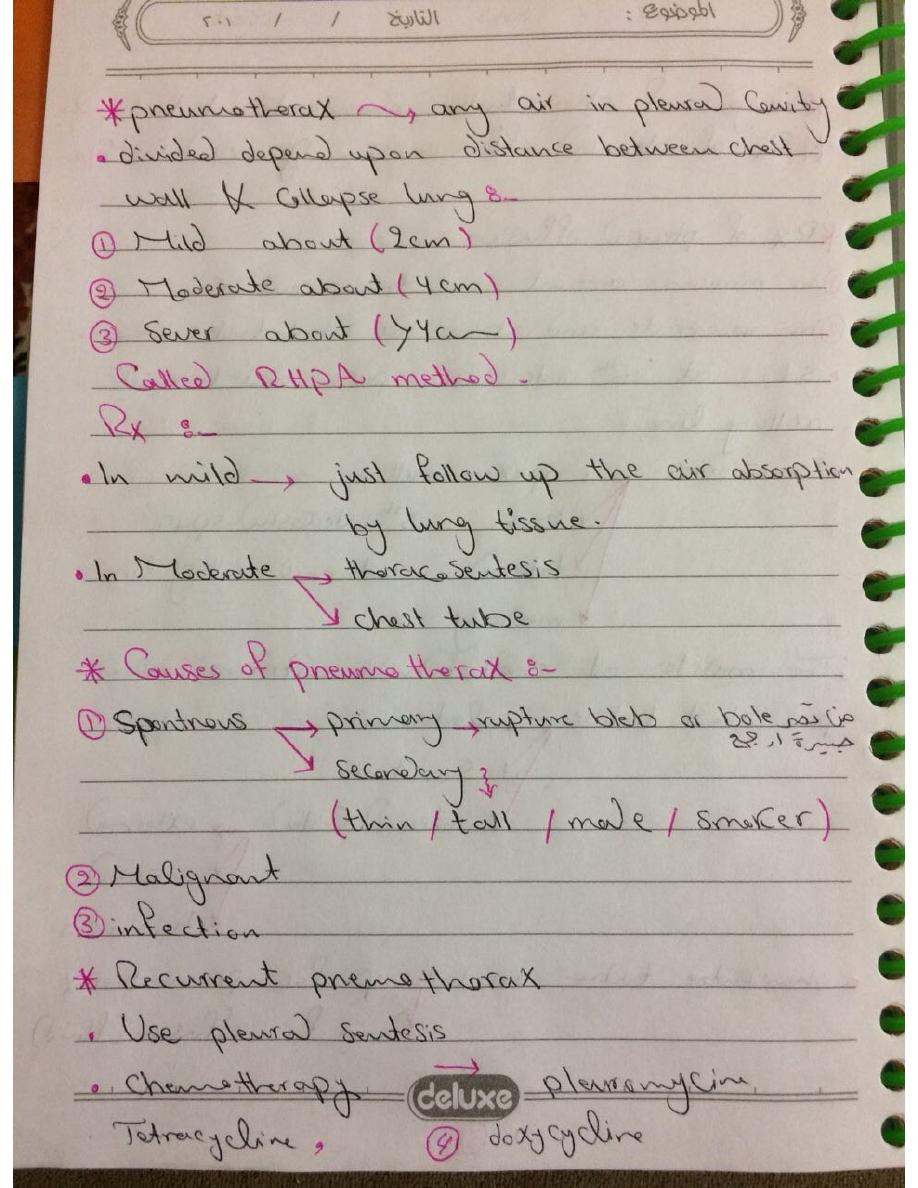 الموضوع :
التاريخ / / ٢٠١
* pneumotherax → any air in pleural Cavity
• divided depend upon distance between chest
wall & Collapse lung :-
① Mild about (2cm)
② Moderate about (4cm)
③ Sever about (>4cm)
Called RHPA method.
Rx :-
• In mild → just follow up the air absorption
by lung tissue.
• In Moderate → thoracosentesis
→ chest tube
* Causes of pneumotherax :-
① Spontnous → primary → rupture bleb or bole
→ Secondary
(thin / tall / male / smoker)
② Malignant
③ infection
* Recurrent pnemothorax
• Use pleural sentesis
• Chemotherapy → pleuromycine
deluxe
Tetracycline, ④ doxycycline